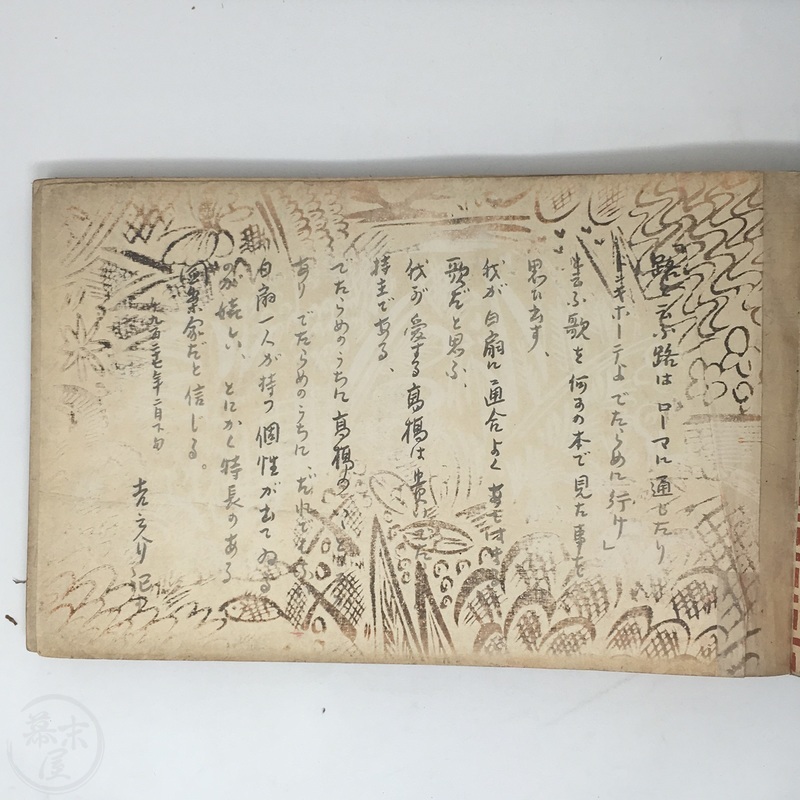 「路と云ふ路は ローマに通じたり
ドンキホーテよ でたらめに行け」
と云ふ歌を 何かの本で見た事を
思ひ出す、
我が白扇に 適合よく
歌だと思ふ、
我が愛する高橋は
持主である、
でたらめのうちに 高橋の
あり でたらめのうちに
白扇一人が持つ 個性が出てゐる
のが嬉しい、 とにかく特長のある
図案家だと信じる。
年二月下旬
記
幕末屋